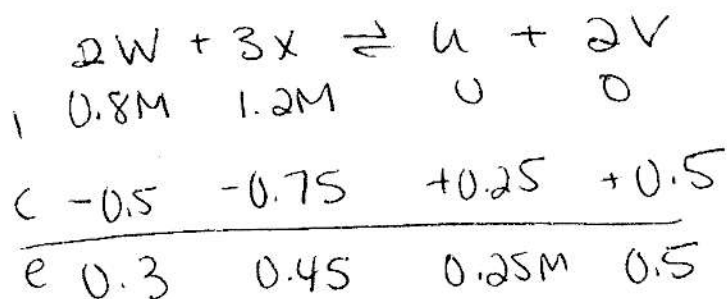 2W + 3X ⇌ U + 2V
i 0.8M 1.2M 0 0
c -0.5 -0.75 +0.25 +0.5
e 0.3 0.45 0.25M 0.5